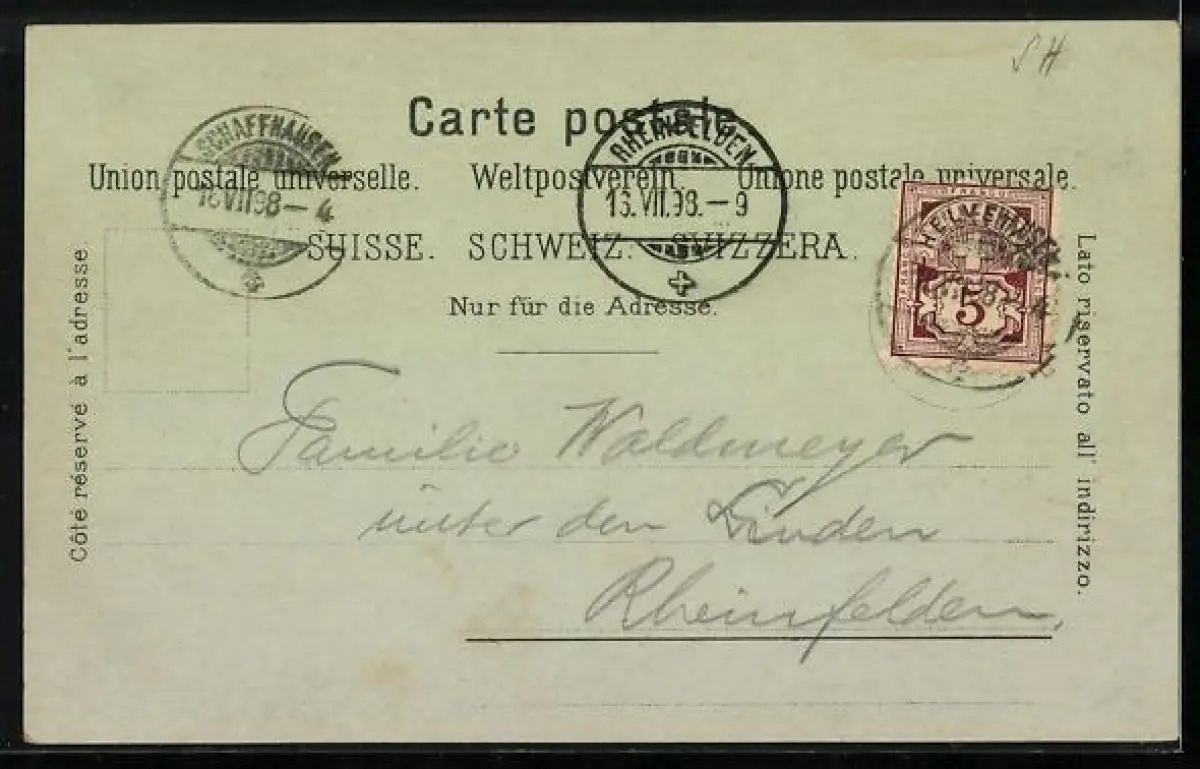 SH
Carte postale
Union postale universelle. Weltpostverein. Unione postale universale.
SUISSE. SCHWEIZ. SVIZZERA.
Nur für die Adresse.
SCHAFFHAUSEN
VII 98 – 4
RHEINFELDEN
16.VII.98. – 9
FRANCO
5
Côté réservé à l'adresse
Lato riservato all' indirizzo.
Familie Waldmeyer
unter den Linden
Rheinfelden.